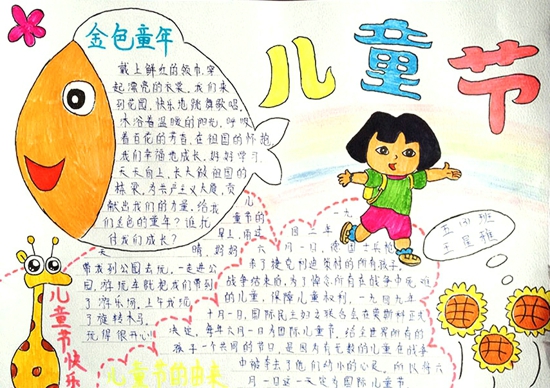 儿童节
金色童年
戴上鲜红的领巾,穿
起漂亮的衣裳,我们来
到花园,快乐地跳舞歌唱,
沐浴着温暖的阳光,呼吸
着百花的芳香,在祖国的怀抱
我们幸福地成长,好好学习,
天天向上,长大做祖国的
栋梁,为共产主义大厦,贡
献出我们的力量,给我
们金色的童年?谁允
付我们成长?
儿童节的
天 晴,妈妈
带我到公园去玩,一走进公
园,游玩车就把我们带到
了游乐场,上午我们玩
了旋转木马
玩得很开心
儿童节快乐
六月一日,德
战争结束后,为了悼念所有在战争中死难
的儿童,保障儿童权利,一九四九年
十一月,国际民主妇女联合会在莫斯科正式
决定,每年六月一日为国际儿童节,给全世界所有的
孩子一个共同的节日,是因为有无数的儿童在战争
中献去了他们幼小的心灵,所以将六
月一日这一天定为国际儿童节
儿童节的由来